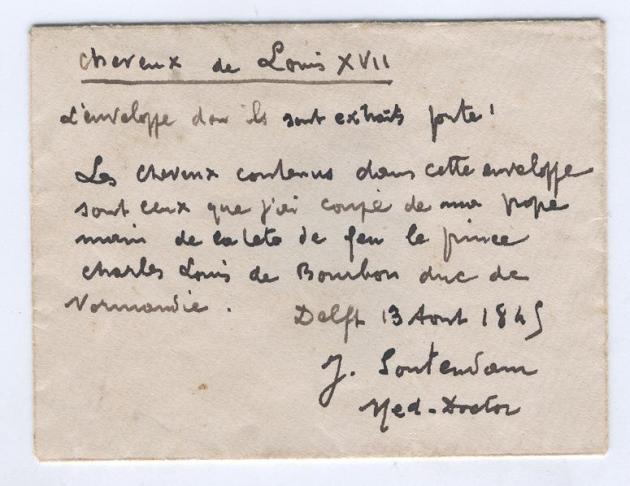 cheveux de Louis XVII
L'enveloppe dou ils sont extraits porte!
Les cheveux contenus dans cette enveloppe
sont ceux que j'ai coupé de ma propre
main de la tete de feu le prince
Charles Louis de Bourbon duc de
Normandie. Delft 13 Aout 1845
J. Soutendam
Med-Doctor